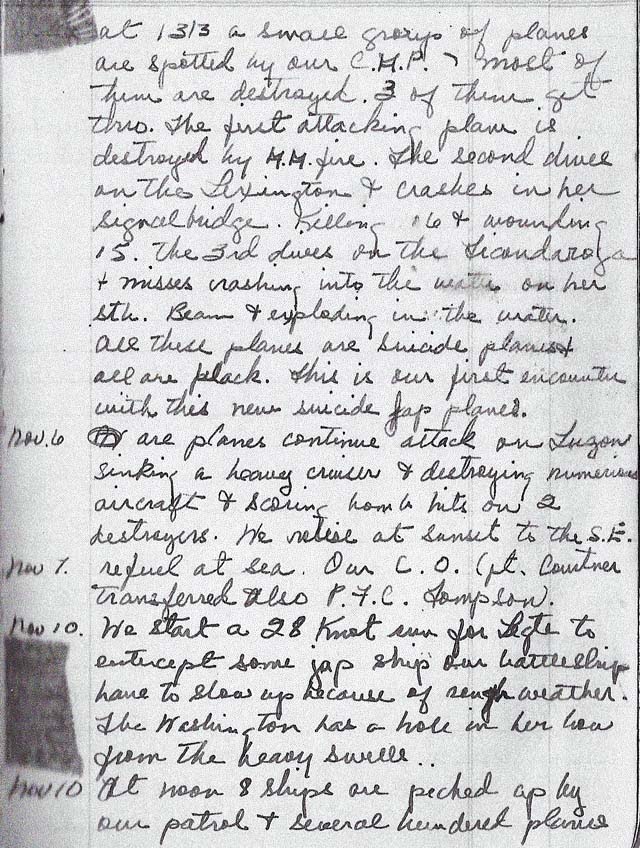 at 1313 a small group of planes
are spotted by our C.A.P. & most of
them are destroyed. 3 of them get
thro. The first attacking plane is
destroyed by M.M. fire. The second dives
on the Lexington & crashes in her
signal bridge. Killing 16 & wounding
15. The 3rd dives on the Ticondaroga
+ misses crashing into the water on her
stb. Beam & exploding in the water.
all these planes are suicide planes &
all are black. This is our first encounter
with this new suicide Jap planes.
Nov. 6 are planes continue attack on Luzon
sinking a heavy cruiser & destroying numerious
aircraft & scoring bomb hits on 2
destroyers. We retire at sunset to the S.E.
Nov 7. refuel at sea. Our C.O. Cpt. Courtner
transferred also P.F.C. Tompson.
Nov 10. We start a 28 Knot run for Legte to
entercept some jap ship our battleship
have to slow up because of rough weather.
The Washington has a hole in her bow
from the heavy swells..
Nov 10 At noon 8 ships are pecked up by
our patrol & several hundered planes